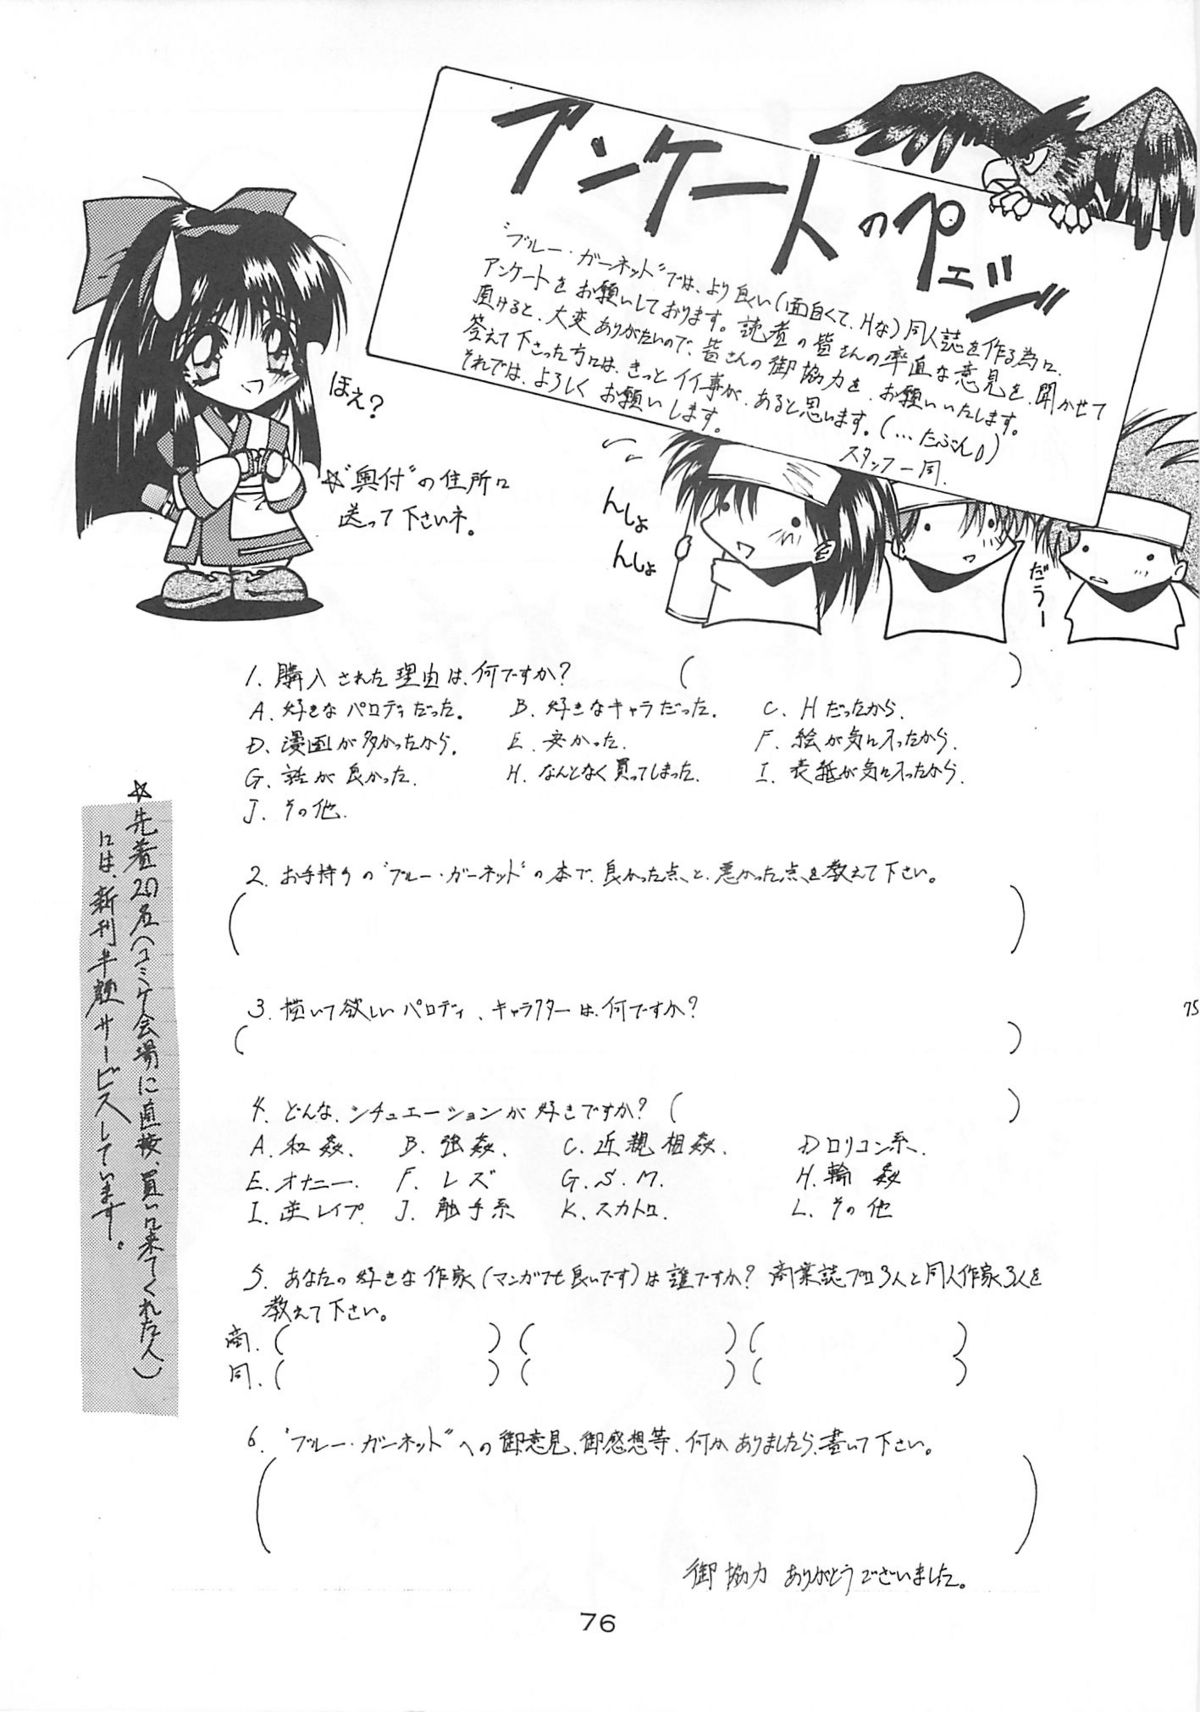 アンケートのページ
"ブルー・ガーネット"では、より良い(面白くて、Hな)同人誌を作る為に、
アンケートをお願いしております。読者の皆さんの率直な意見を、聞かせて
頂けると、大変ありがたいので、皆さんの御協力を、お願いいたします。
答えて下さった方には、きっとイイ事が、あると思います。(…たぶん)
それでは、よろしくお願いします。
スタッフ一同.
ほえ?
☆"奥付"の住所に
送って下さいネ。
んしょ
んしょ
だぅー
1. 購入された理由は、何ですか? ( )
A. 好きなパロディだった。 B. 好きなキャラだった。 C. Hだったから.
D. 漫画が多かったから. E. 安かった. F. 絵が気に入ったから.
G. 話が良かった. H. なんとなく買ってしまった. I. 表紙が気に入ったから.
J. その他.
2. お手持ちの"ブルー・ガーネット"の本で、良かった点、と、悪かった点、を教えて下さい。
( )
3. 描いて欲しいパロディ、キャラクターは、何ですか?
( )
4. どんな、シチュエーションが好きですか? ( )
A. 和姦. B. 強姦. C. 近親相姦. D ロリコン系.
E. オナニー. F. レズ G. S. M. H. 輪姦
I. 逆レイプ. J. 触手系 K. スカトロ. L. その他
5. あなたの好きな作家(マンガでも良いです)は誰ですか? 商業誌プロ3人と同人作家3人を
教えて下さい。
商. ( ) ( ) ( )
同. ( ) ( ) ( )
6. "ブルー・ガーネット"への御意見、御感想等、何かありましたら、書いて下さい。
( )
御協力 ありがとうございました。
☆先着20名(コミケ会場に直接、買いに来てくれた人)
には、新刊半額サービスしています。
75
76